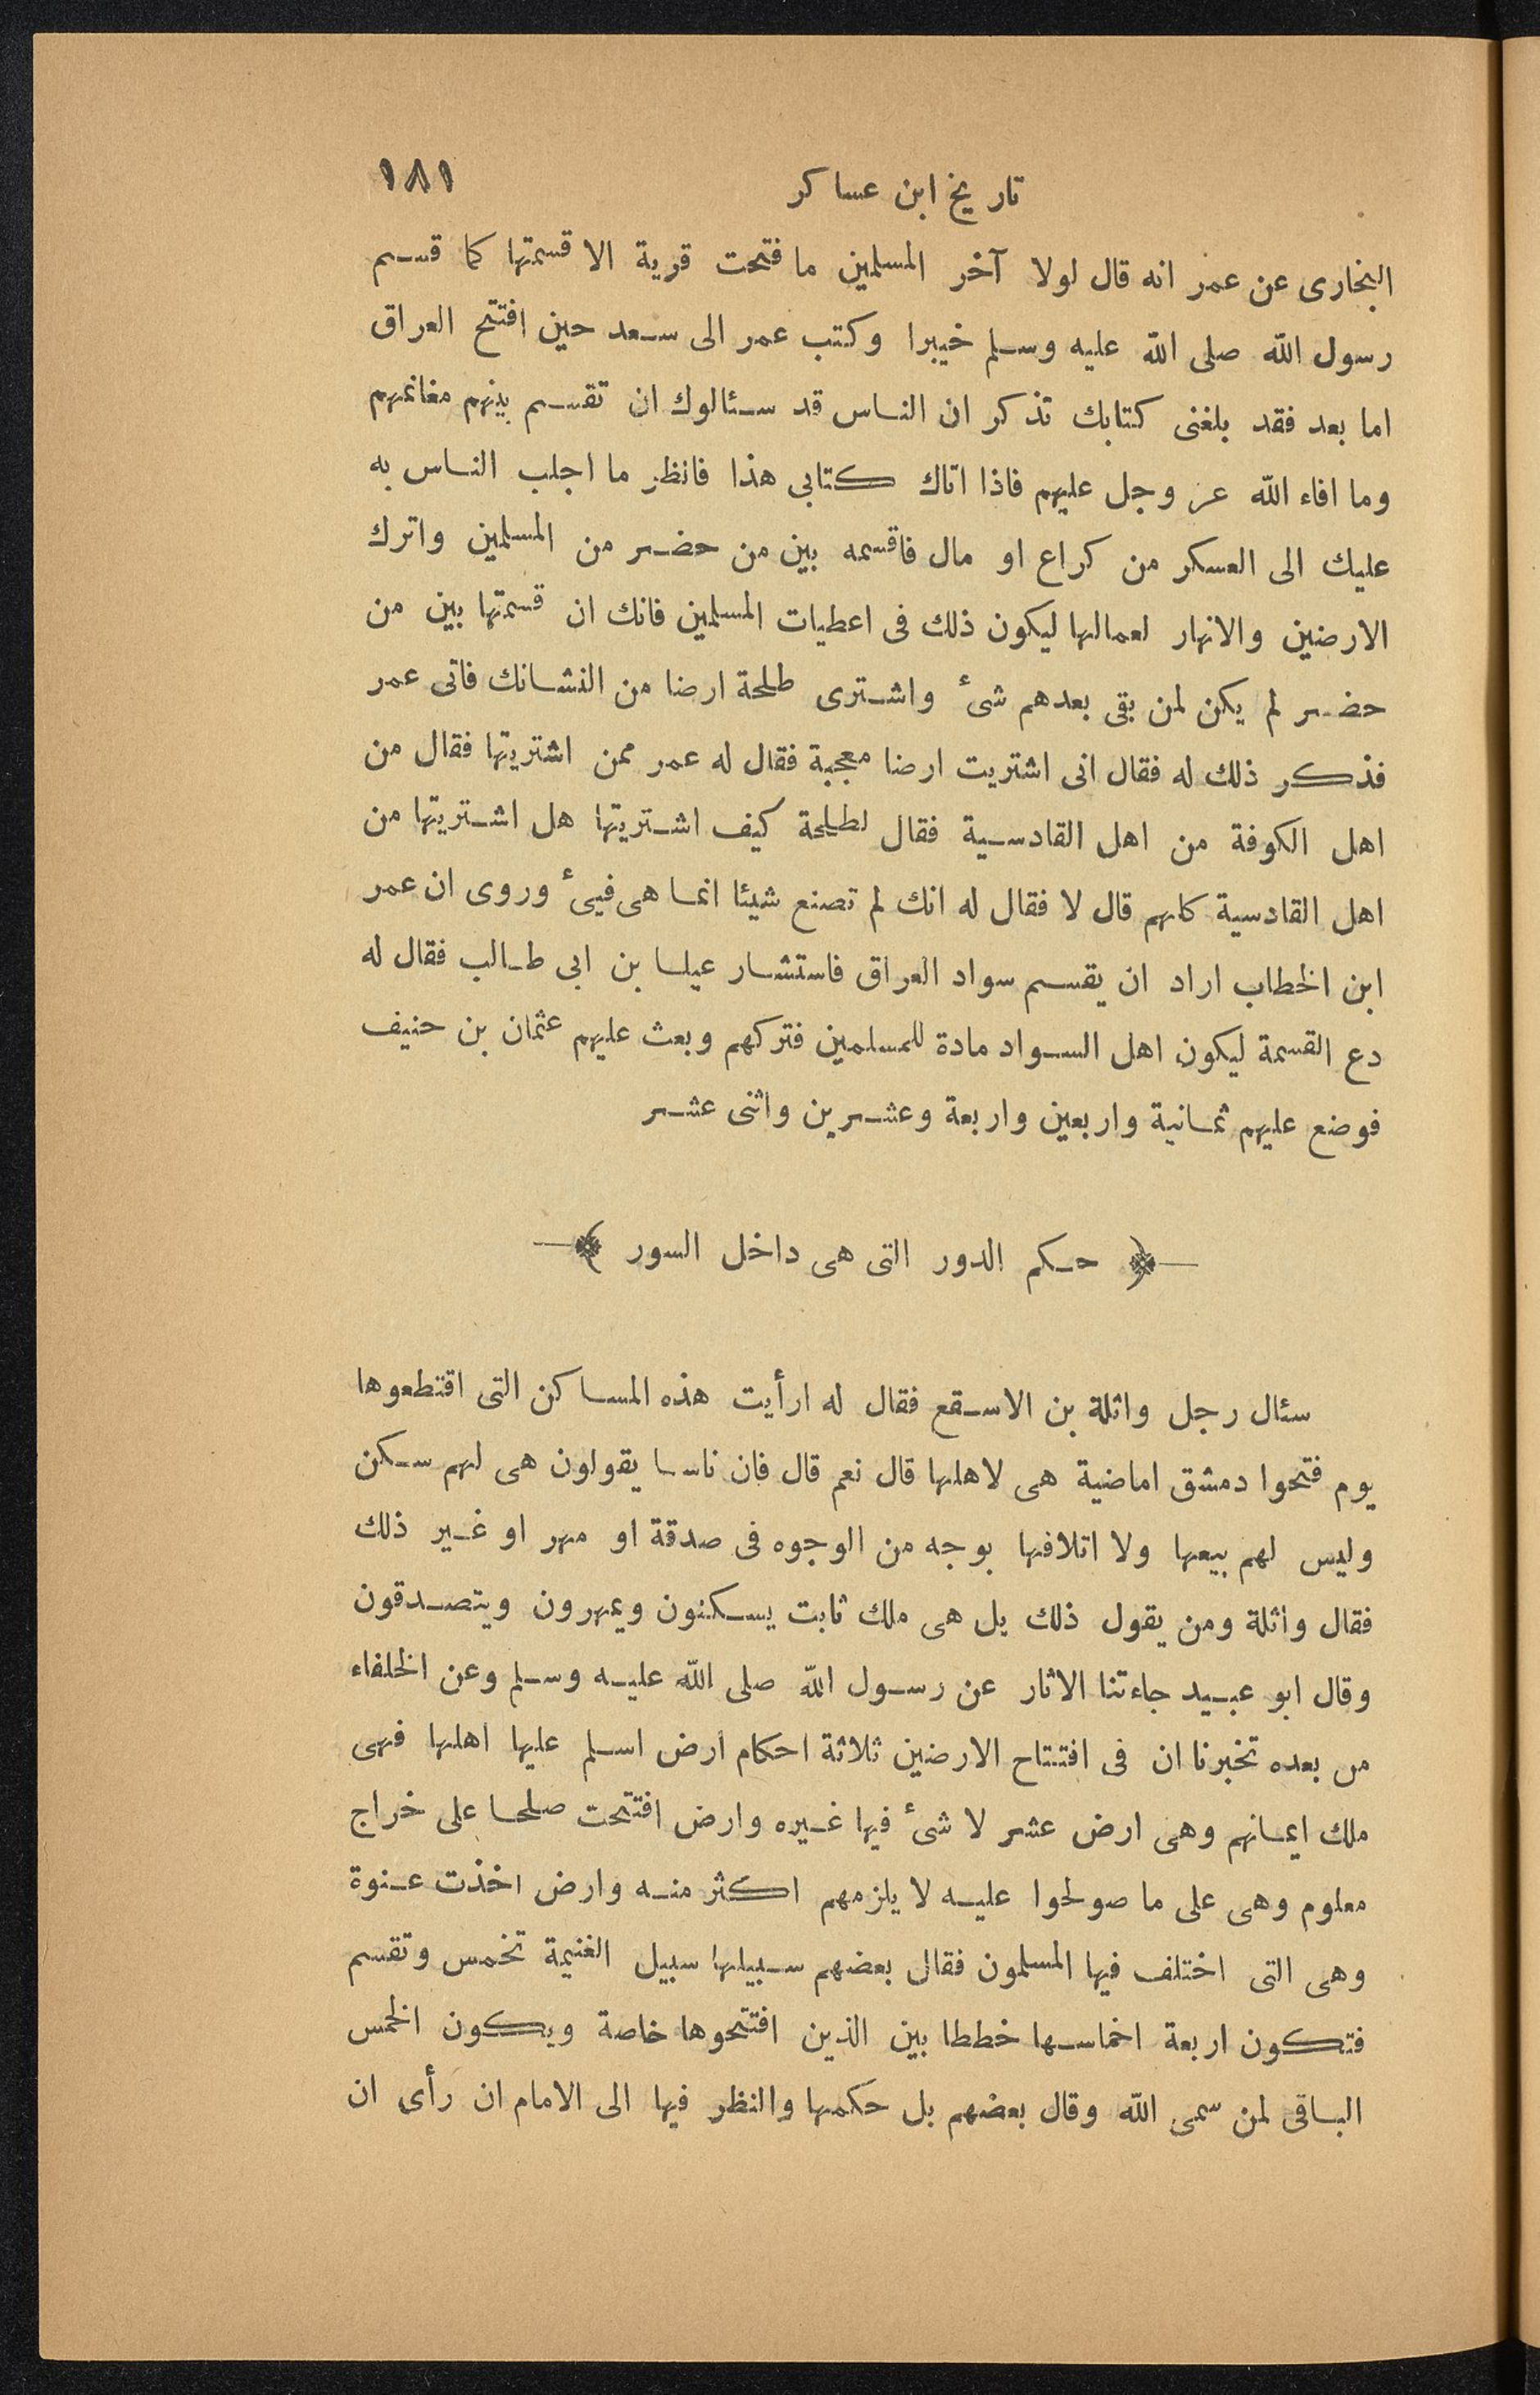 تاريخ ابن عساكر ١٨١
البخارى عن عمر انه قال لولا آخر المسلمين ما فتحت قرية الا قسمتها كما قسم
رسول الله صلى الله عليه وسلم خيبرا وكتب عمر الى سعد حين افتتح العراق
اما بعد فقد بلغنى كتابك تذكر ان الناس قد سئالوك ان تقسم بينهم مغانمهم
وما افاء الله عز وجل عليهم فاذا اتاك كتابى هذا فانظر ما اجلب الناس به
عليك الى العسكر من كراع او مال فاقسمه بين من حضر من المسلمين واترك
الارضين والانهار لعمالها ليكون ذلك فى اعطيات المسلمين فانك ان قسمتها بين من
حضر لم يكن لمن بقى بعدهم شىٔ واشترى طلحة ارضا من النشانك فاتى عمر
فذكر ذلك له فقال انى اشتريت ارضا معجبة فقال له عمر ممن اشتريتها فقال من
اهل الكوفة من اهل القادسية فقال لطلحة كيف اشتريتها هل اشتريتها من
اهل القادسية كلهم قال لا فقال له انك لم تصنع شيئا انما هى فيىٔ وروى ان عمر
ابن الخطاب اراد ان يقسم سواد العراق فاستشار عيلسا بن ابى طالب فقال له
دع القسمة ليكون اهل السواد مادة للمسلمين فتركهم وبعث عليهم عثمان بن حنيف
فوضع عليهم ثمانية واربعين واربعة وعشرين واثنى عشر
﴿ حكم الدور التى هى داخل السور ﴾
سئال رجل واثلة بن الاسقع فقال له ارأيت هذه المساكن التى اقتطعوها
يوم فتحوا دمشق اماضية هى لاهلها قال نعم قال فان ناسا يقولون هى لهم سكن
وليس لهم بيعها ولا اتلافها بوجه من الوجوه فى صدقة او مهر او غير ذلك
فقال واثلة ومن يقول ذلك بل هى ملك ثابت يسكنون ويمهرون ويتصدقون
وقال ابو عبيد جاءتنا الاثار عن رسول الله صلى الله عليه وسلم وعن الخلفاء
من بعده تخبرنا ان فى افتتاح الارضين ثلاثة احكام ارض اسلم عليها اهلها فهى
ملك ايمانهم وهى ارض عشر لا شىٔ فيها غيره وارض افتتحت صلحا على خراج
معلوم وهى على ما صولحوا عليه لا يلزمهم اكثر منه وارض اخذت عنوة
وهى التى اختلف فيها المسلمون فقال بعضهم سبيلها سبيل الغنيمة تخمس وتقسم
فتكون اربعة اخماسها خططا بين الذين افتتحوها خاصة ويكون الخمس
الباقى لمن سمى الله وقال بعضهم بل حكمها والنظر فيها الى الامام ان رأى ان